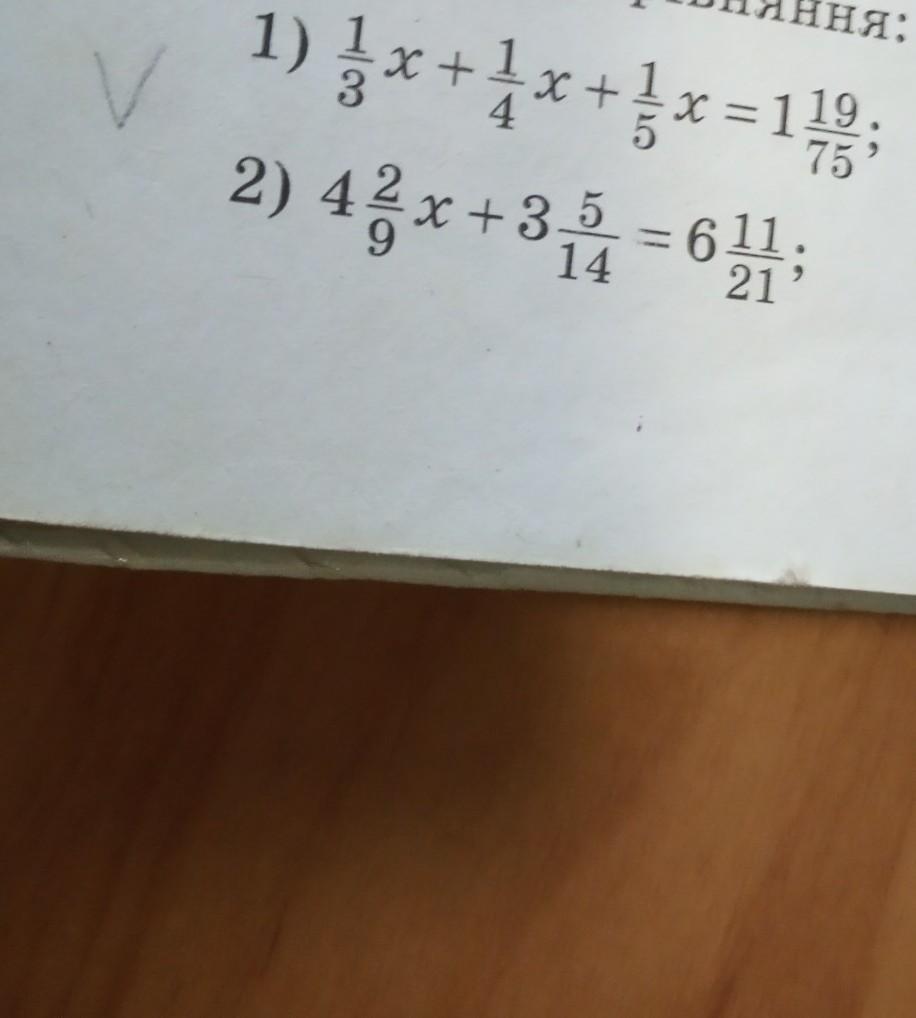 1) 1/3 x + 1/4 x + 1/5 x = 1 19/75;
2) 4 2/9 x + 3 5/14 = 6 11/21;